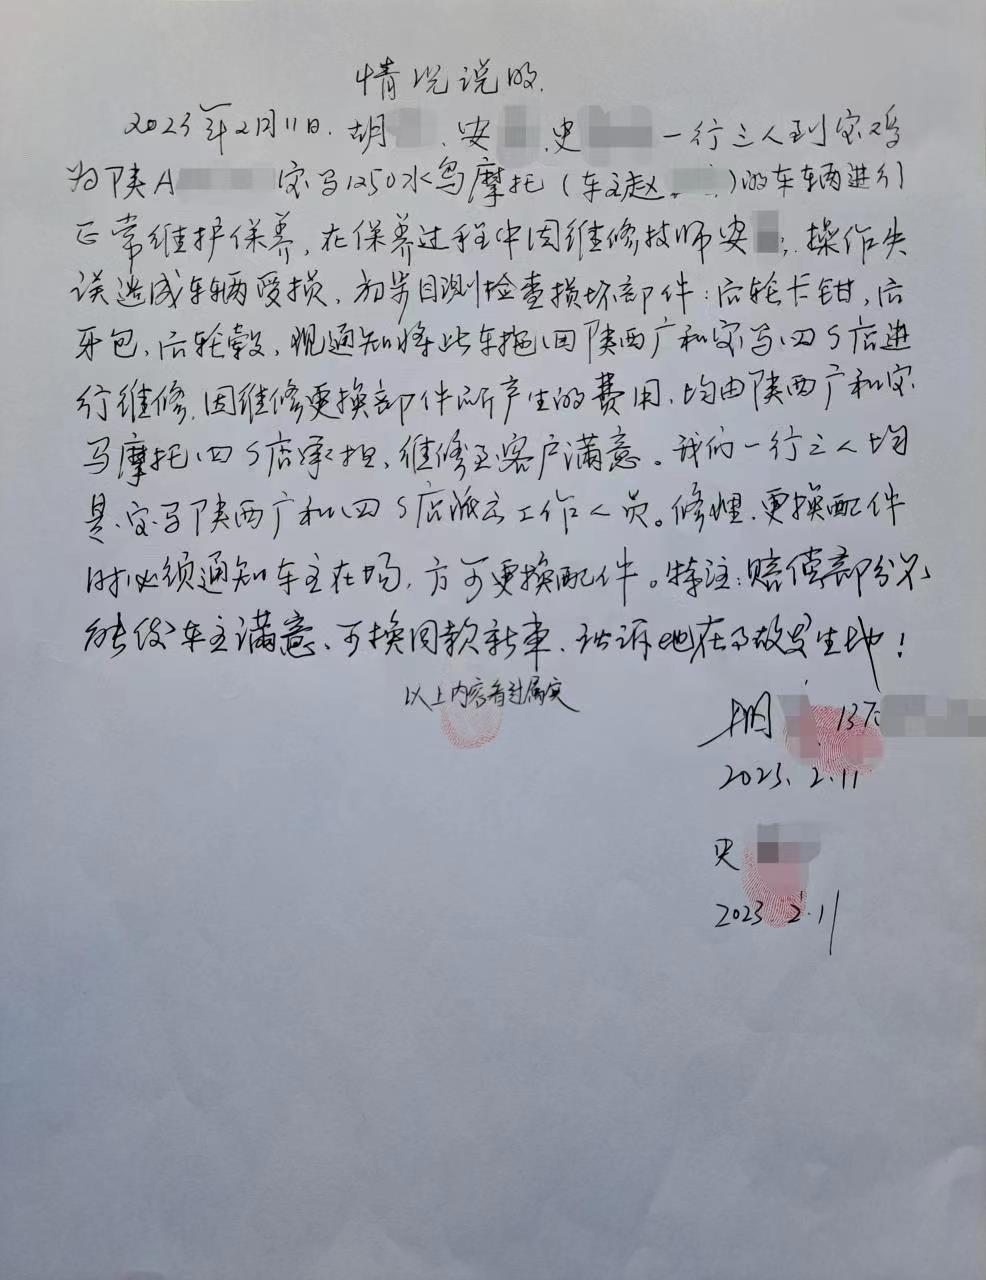 情况说明
2023年2月11日.胡 .安 .史 一行三人到宝鸡
为陕A 宝马1250水鸟摩托(车主赵 )的车辆进行
正常维护保养,在保养过程中因维修技师安 ,操作失
误造成车辆受损,初步目测检查损坏部件:后轮卡钳,后
牙包,后轮毂,现通知将此车拖回陕西广和宝马四S店进
行维修,因维修更换部件所产生的费用,均由陕西广和宝
马摩托四S店承担,维修至客户满意。我们一行三人均
是宝马陕西广和四S店派出工作人员。修理,更换配件
时必须通知车主在场,方可更换配件。特注:赔偿部分不
能使车主满意,可换同款新車,诉地在事故发生地!
以上内容看过属实
胡 137
2023.2.11
史
2023.2.11